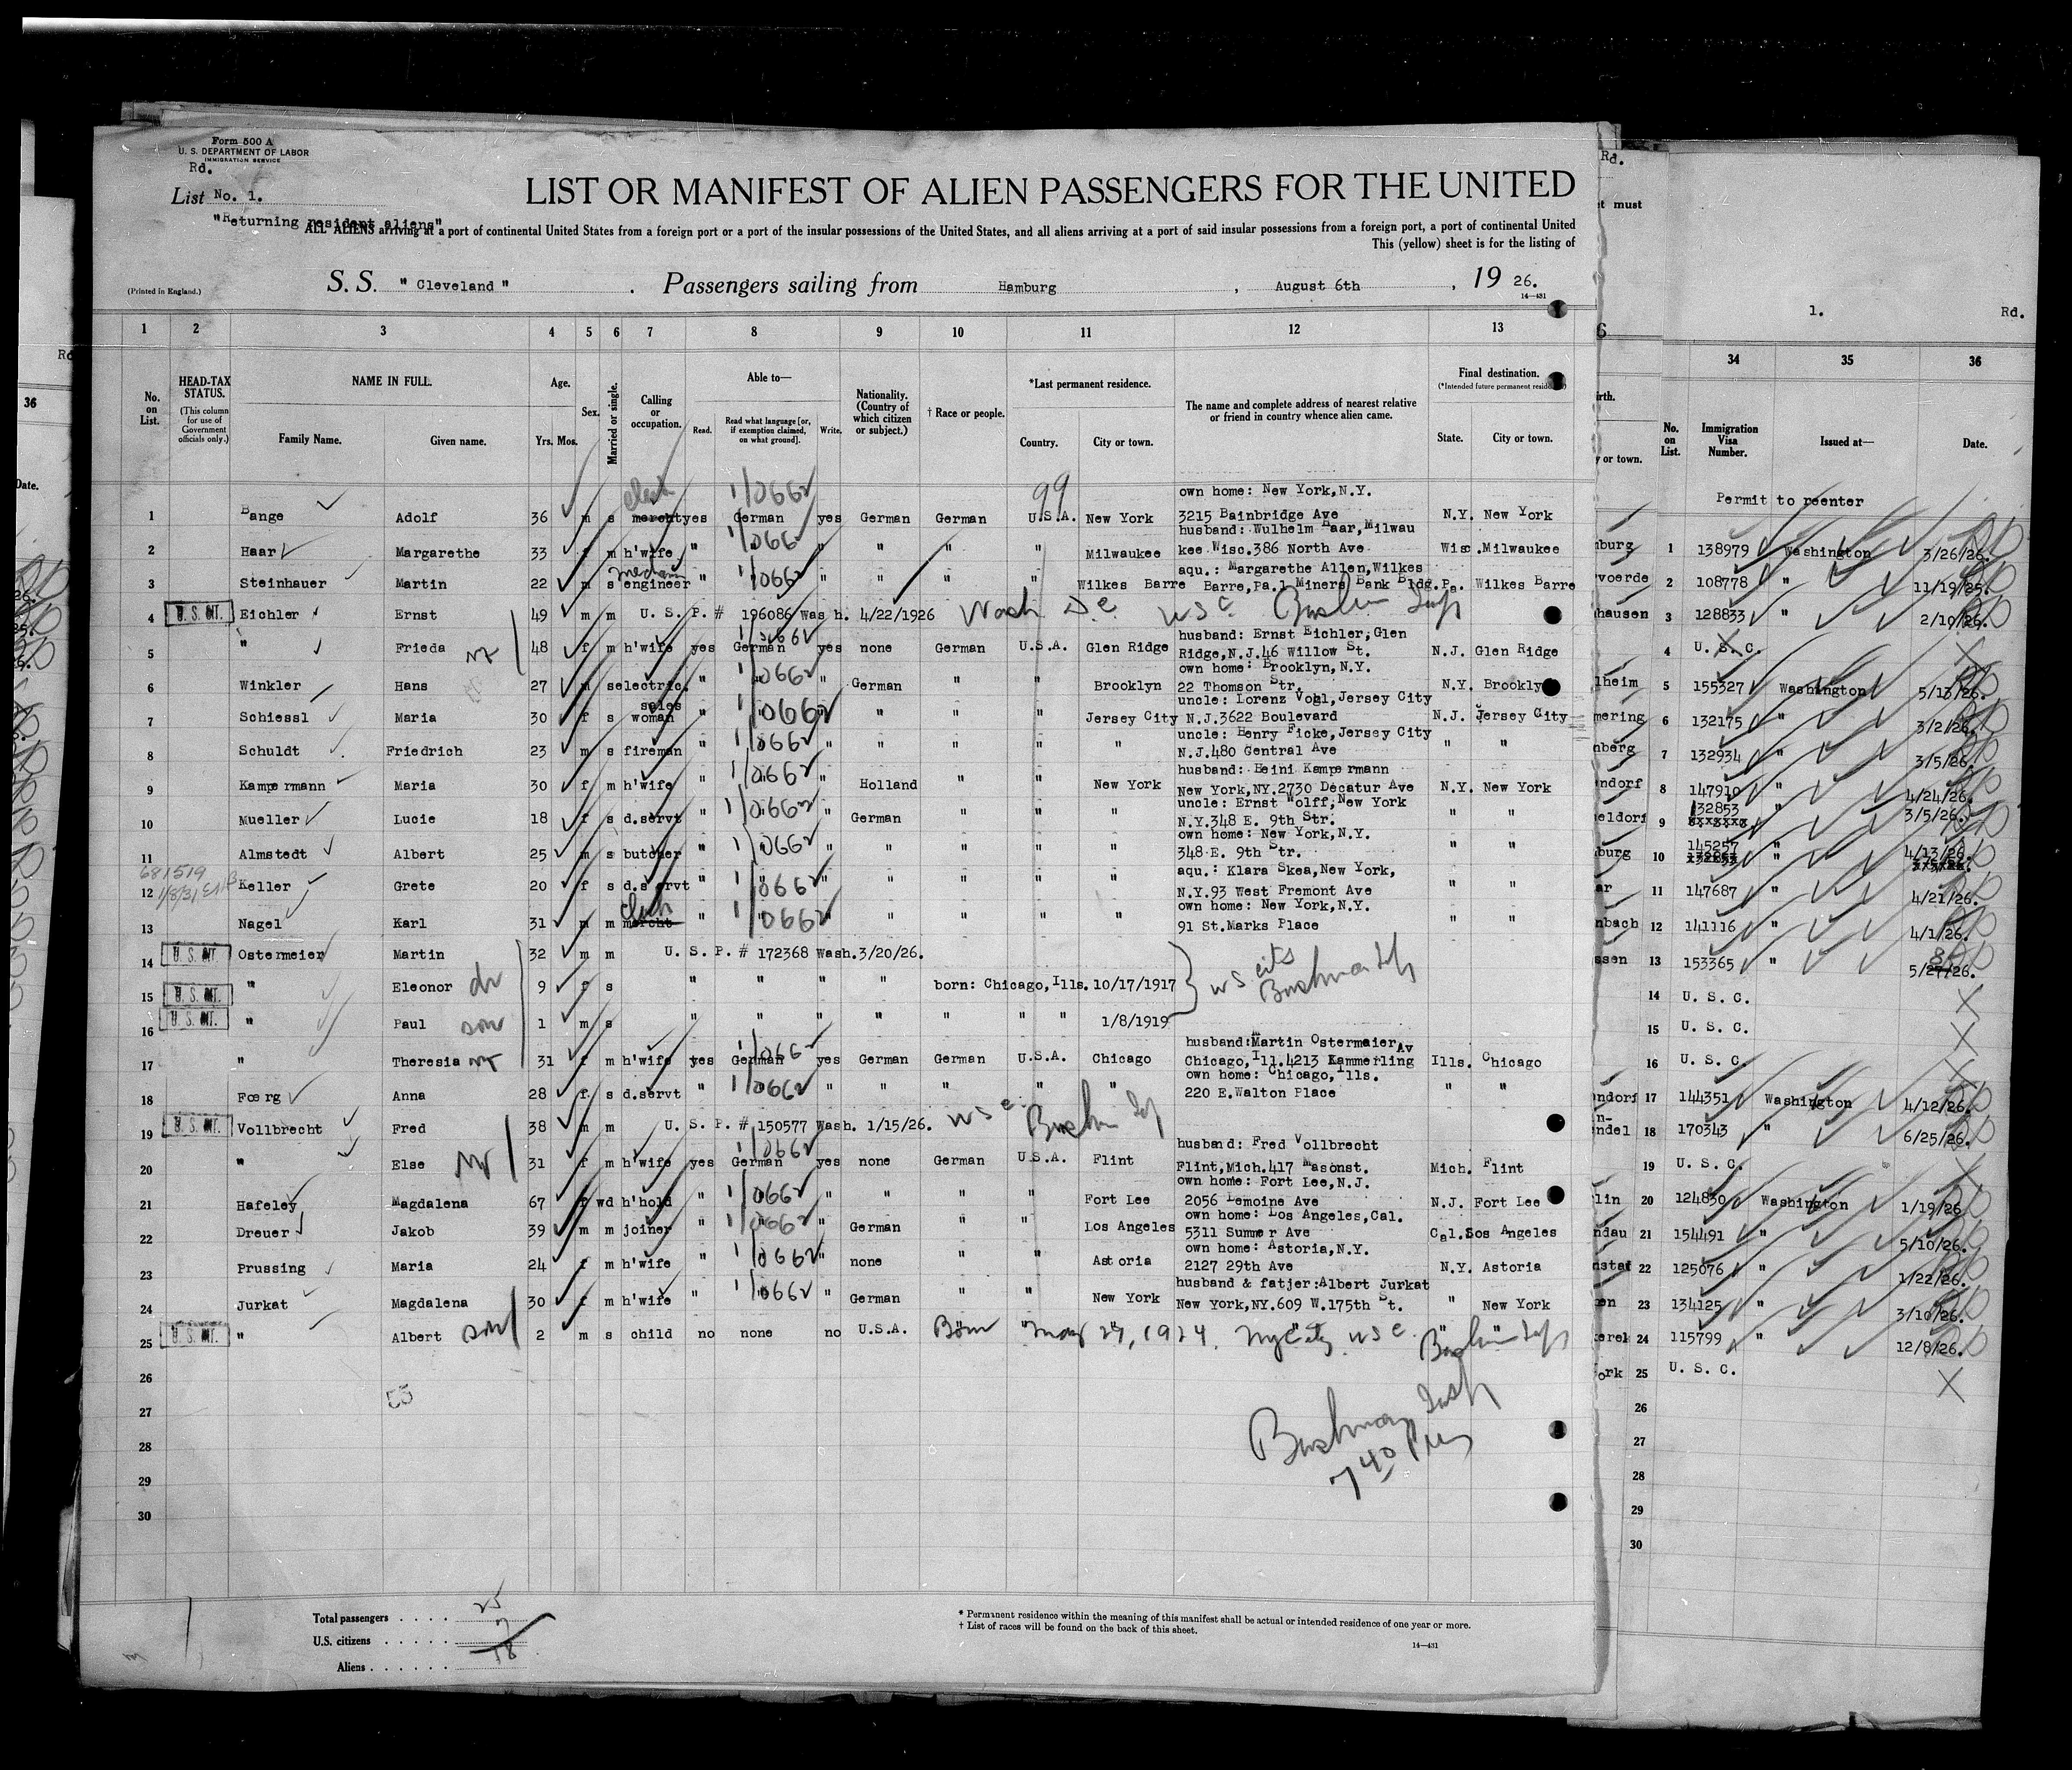 Form 500 A
U. S. DEPARTMENT OF LABOR
IMMIGRATION SERVICE
Rd.
List No. 1.
"Returning resident aliens"
LIST OR MANIFEST OF ALIEN PASSENGERS FOR THE UNITED
ALL ALIENS arriving at a port of continental United States from a foreign port or a port of the insular possessions of the United States, and all aliens arriving at a port of said insular possessions from a foreign port, a port of continental United
This (yellow) sheet is for the listing of
(Printed in England.)
S. S. "Cleveland". Passengers sailing from Hamburg, August 6th, 19 26.
14—431
1 2 3 4 5 6 7 8 9 10 11 12 13
No. on List.
HEAD-TAX STATUS.
(This column for use of Government officials only.)
NAME IN FULL.
Family Name. Given name.
Age.
Yrs. Mos.
Sex.
Married or single.
Calling or occupation.
Able to—
Read. Read what language [or, if exemption claimed, on what ground]. Write.
Nationality. (Country of which citizen or subject.)
† Race or people.
*Last permanent residence.
Country. City or town.
The name and complete address of nearest relative or friend in country whence alien came.
Final destination.
(*Intended future permanent residence)
State. City or town.
99
own home: New York, N.Y.
1 Bange Adolf 36 m s mercht yes German yes German German U.S.A. New York 3215 Bainbridge Ave N.Y. New York
husband: Wulhelm Haar, Milwau
2 Haar Margarethe 33 f m h'wife " " " " " " Milwaukee kee Wisc. 386 North Ave Wisc. Milwaukee
aqu.: Margarethe Allen, Wilkes
3 Steinhauer Martin 22 m s engineer " " " " " " Wilkes Barre Barre, Pa. 1 Miners Bank Bldg. Pa. Wilkes Barre
4 U. S. CIT. Eichler Ernst 49 m m U. S. P. # 196086 Wash. 4/22/1926 Wash D.C. USC
husband: Ernst Eichler, Glen
5 " Frieda 48 f m h'wife yes German yes none German U.S.A. Glen Ridge Ridge, N.J. 46 Willow St. N.J. Glen Ridge
own home: Brooklyn, N.Y.
6 Winkler Hans 27 m s electric. " " " German " " Brooklyn 22 Thomson Str. N.Y. Brooklyn
uncle: Lorenz Vogl, Jersey City
7 Schiessl Maria 30 f s sales woman " " " " " " Jersey City N.J. 3622 Boulevard N.J. Jersey City
uncle: Henry Ficke, Jersey City
8 Schuldt Friedrich 23 m s fireman " " " " " " " N.J. 480 Central Ave " "
husband: Heini Kampermann
9 Kampermann Maria 30 f m h'wife " " " Holland " " New York New York, NY. 2730 Decatur Ave N.Y. New York
uncle: Ernst Wolff, New York
10 Mueller Lucie 18 f s d.servt " " " German " " " N.Y. 348 E. 9th Str. " "
own home: New York, N.Y.
11 Almstedt Albert 25 m s butcher " " " " " " " 348 E. 9th Str. " "
681519
aqu.: Klara Skea, New York,
12 Keller Grete 20 f s d.servt " " " " " " " N.Y. 93 West Fremont Ave " "
own home: New York, N.Y.
13 Nagel Karl 31 m m mercht " " " " " " " 91 St. Marks Place " "
14 U. S. CIT. Ostermeier Martin 32 m m U. S. P. # 172368 Wash. 3/20/26.
15 U. S. CIT. " Eleonor 9 f s " " " " born: Chicago, Ills. 10/17/1917 US cits
16 U. S. CIT. " Paul son 1 m s " " " " " " " 1/8/1919
husband: Martin Ostermaier
17 " Theresia 31 f m h'wife yes German yes German German U.S.A. Chicago Chicago, Ill. 4213 Kammerling Av Ills. Chicago
own home: Chicago, Ills.
18 Foerg Anna 28 f s d.servt " " " " " " " 220 E. Walton Place " "
19 U. S. CIT. Vollbrecht Fred 38 m m U. S. P. # 150577 Wash. 1/15/26. USC
husband: Fred Vollbrecht
20 " Else 31 f m h'wife yes German yes none German U.S.A. Flint Flint, Mich. 417 Masonst. Mich. Flint
own home: Fort Lee, N.J.
21 Hafeley Magdalena 67 f wd h'hold " " " " " " Fort Lee 2056 Lemoine Ave N.J. Fort Lee
own home: Los Angeles, Cal.
22 Dreuer Jakob 39 m m joiner " " " German " " Los Angeles 5311 Summer Ave Cal. Sos Angeles
own home: Astoria, N.Y.
23 Prussing Maria 24 f m h'wife " " " none " " Astoria 2127 29th Ave N.Y. Astoria
husband & fatjer: Albert Jurkat
24 Jurkat Magdalena 30 f m h'wife " " " German " " New York New York, NY. 609 W. 175th St. " New York
25 U. S. CIT. " Albert son 2 m s child no none no U.S.A. Born May 27, 1924. NYCity USC
26
27
28
29
30
55
Bushman Insp
7 40 PM
Total passengers . . . . 25
U.S. citizens . . . . . 7
Aliens . . . . . . 18
* Permanent residence within the meaning of this manifest shall be actual or intended residence of one year or more.
† List of races will be found on the back of this sheet.
14—431
1. Rd.
34 35 36
No. on List. Immigration Visa Number. Issued at— Date.
Permit to reenter
1 138979 Washington 3/26/26.
2 108778 " 11/19/25.
3 128833 " 2/10/26.
4 U. S. C.
5 155327 Washington 5/13/26.
6 132175 " 3/2/26.
7 132934 " 3/5/26.
8 147910 " 4/24/26.
9 132853 " 3/5/26.
10 145257 " 4/13/26.
11 147687 " 4/21/26.
12 141116 " 4/1/26.
13 153365 " 5/27/26.
14 U. S. C.
15 U. S. C.
16 U. S. C.
17 144351 Washington 4/12/26.
18 170343 " 6/25/26.
19 U. S. C.
20 124830 Washington 1/19/26
21 154491 " 5/10/26.
22 125076 " 1/22/26.
23 134125 " 3/10/26.
24 115799 " 12/8/26.
25 U. S. C.
26
27
28
29
30